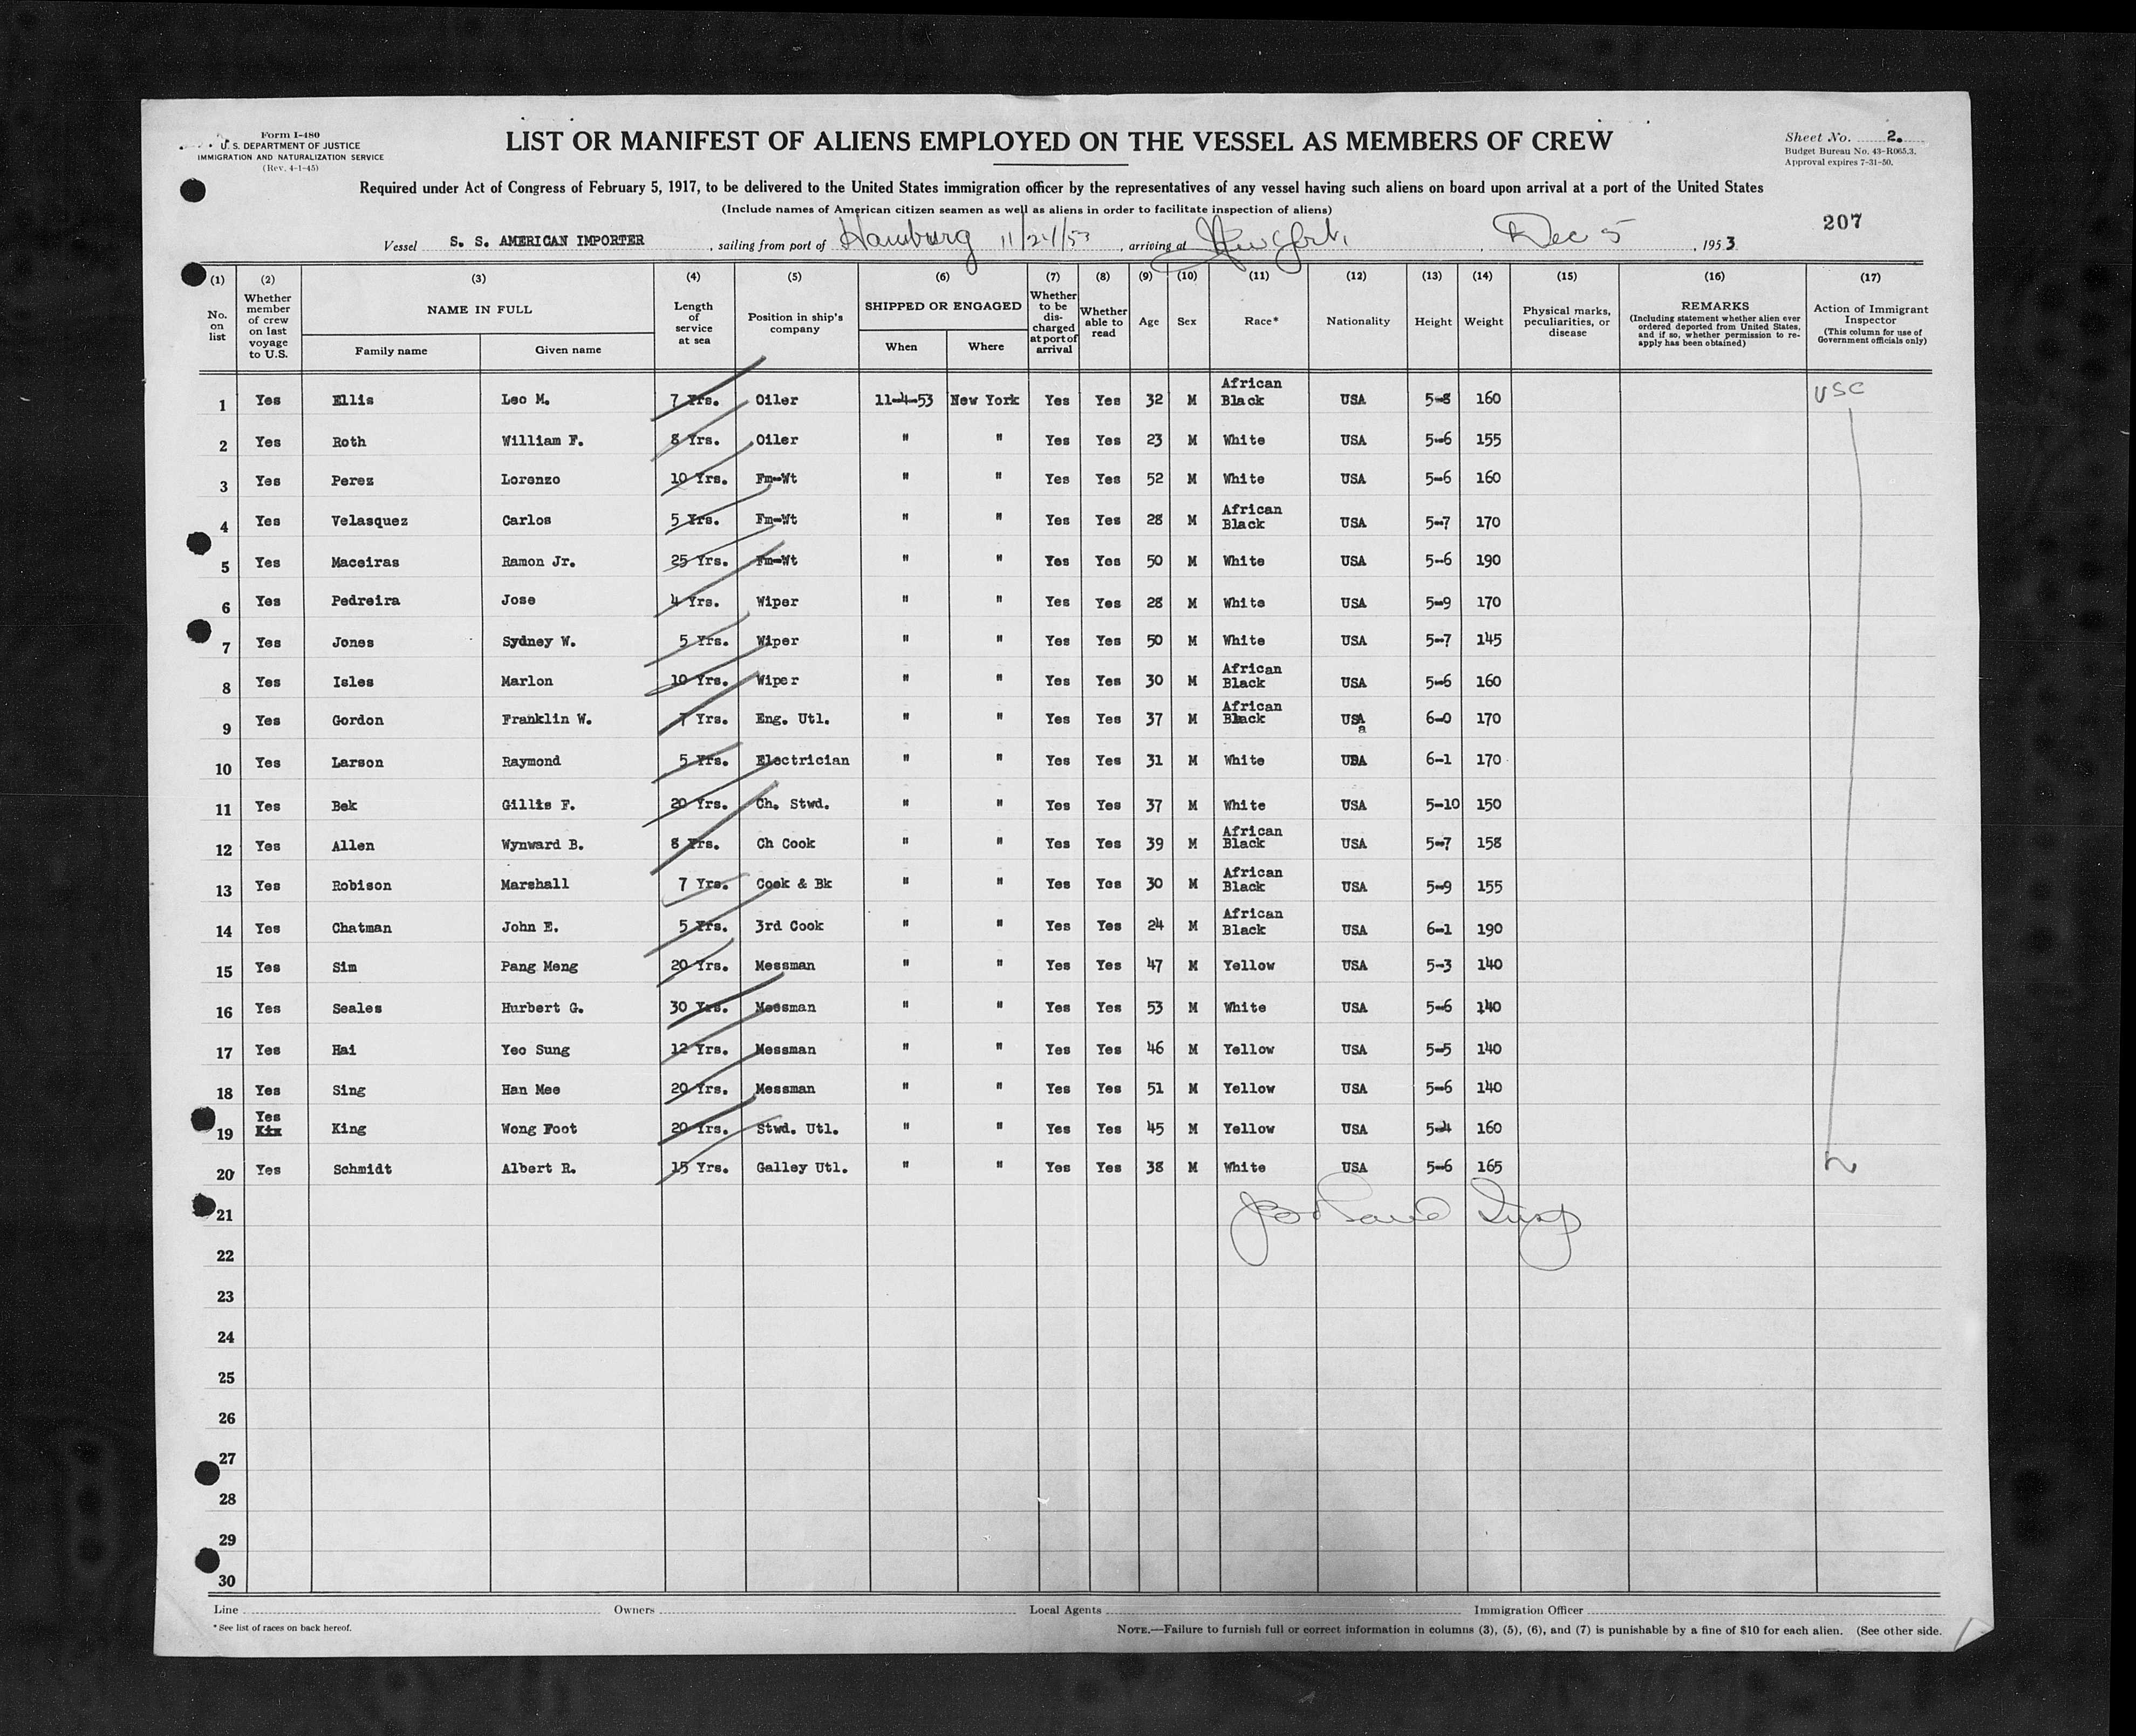 Form I-480
U. S. DEPARTMENT OF JUSTICE
IMMIGRATION AND NATURALIZATION SERVICE
(Rev. 4-1-45)
LIST OR MANIFEST OF ALIENS EMPLOYED ON THE VESSEL AS MEMBERS OF CREW
Sheet No. 2.
Budget Bureau No. 43-R065.3.
Approval expires 7-31-50.
Required under Act of Congress of February 5, 1917, to be delivered to the United States immigration officer by the representatives of any vessel having such aliens on board upon arrival at a port of the United States
(Include names of American citizen seamen as well as aliens in order to facilitate inspection of aliens)
207
Vessel S. S. AMERICAN IMPORTER, sailing from port of Hamburg 11/24/53, arriving at New York, Dec 5, 1953
(1) (2) (3) (4) (5) (6) (7) (8) (9) (10) (11) (12) (13) (14) (15) (16) (17)
No. on list
Whether member of crew on last voyage to U.S.
NAME IN FULL
Family name
Given name
Length of service at sea
Position in ship's company
SHIPPED OR ENGAGED
When
Where
Whether to be discharged at port of arrival
Whether able to read
Age
Sex
Race*
Nationality
Height
Weight
Physical marks, peculiarities, or disease
REMARKS
(Including statement whether alien ever ordered deported from United States, and if so, whether permission to re-apply has been obtained)
Action of Immigrant Inspector
(This column for use of Government officials only)
1 Yes Ellis Leo M. 7 Yrs. Oiler 11-4-53 New York Yes Yes 32 M African Black USA 5-8 160 USC
2 Yes Roth William F. 8 Yrs. Oiler " " Yes Yes 23 M White USA 5-6 155
3 Yes Perez Lorenzo 10 Yrs. Fm-Wt " " Yes Yes 52 M White USA 5-6 160
4 Yes Velasquez Carlos 5 Yrs. Fm-Wt " " Yes Yes 28 M African Black USA 5-7 170
5 Yes Maceiras Ramon Jr. 25 Yrs. Fm-Wt " " Yes Yes 50 M White USA 5-6 190
6 Yes Pedreira Jose 4 Yrs. Wiper " " Yes Yes 28 M White USA 5-9 170
7 Yes Jones Sydney W. 5 Yrs. Wiper " " Yes Yes 50 M White USA 5-7 145
8 Yes Isles Marlon 10 Yrs. Wiper " " Yes Yes 30 M African Black USA 5-6 160
9 Yes Gordon Franklin W. 7 Yrs. Eng. Utl. " " Yes Yes 37 M African Black USA 6-0 170
10 Yes Larson Raymond 5 Yrs. Electrician " " Yes Yes 31 M White USA 6-1 170
11 Yes Bek Gillis F. 20 Yrs. Ch. Stwd. " " Yes Yes 37 M White USA 5-10 150
12 Yes Allen Wynward B. 8 Yrs. Ch Cook " " Yes Yes 39 M African Black USA 5-7 158
13 Yes Robison Marshall 7 Yrs. Cook & Bk " " Yes Yes 30 M African Black USA 5-9 155
14 Yes Chatman John E. 5 Yrs. 3rd Cook " " Yes Yes 24 M African Black USA 6-1 190
15 Yes Sim Pang Meng 20 Yrs. Messman " " Yes Yes 47 M Yellow USA 5-3 140
16 Yes Seales Hurbert G. 30 Yrs. Messman " " Yes Yes 53 M White USA 5-6 140
17 Yes Hai Yeo Sung 12 Yrs. Messman " " Yes Yes 46 M Yellow USA 5-5 140
18 Yes Sing Han Mee 20 Yrs. Messman " " Yes Yes 51 M Yellow USA 5-6 140
19 Yes King Wong Foot 20 Yrs. Stwd. Utl. " " Yes Yes 45 M Yellow USA 5-4 160
20 Yes Schmidt Albert R. 15 Yrs. Galley Utl. " " Yes Yes 38 M White USA 5-6 165
21
22
23
24
25
26
27
28
29
30
Line Owners Local Agents Immigration Officer
*See list of races on back hereof.
NOTE.—Failure to furnish full or correct information in columns (3), (5), (6), and (7) is punishable by a fine of $10 for each alien. (See other side.